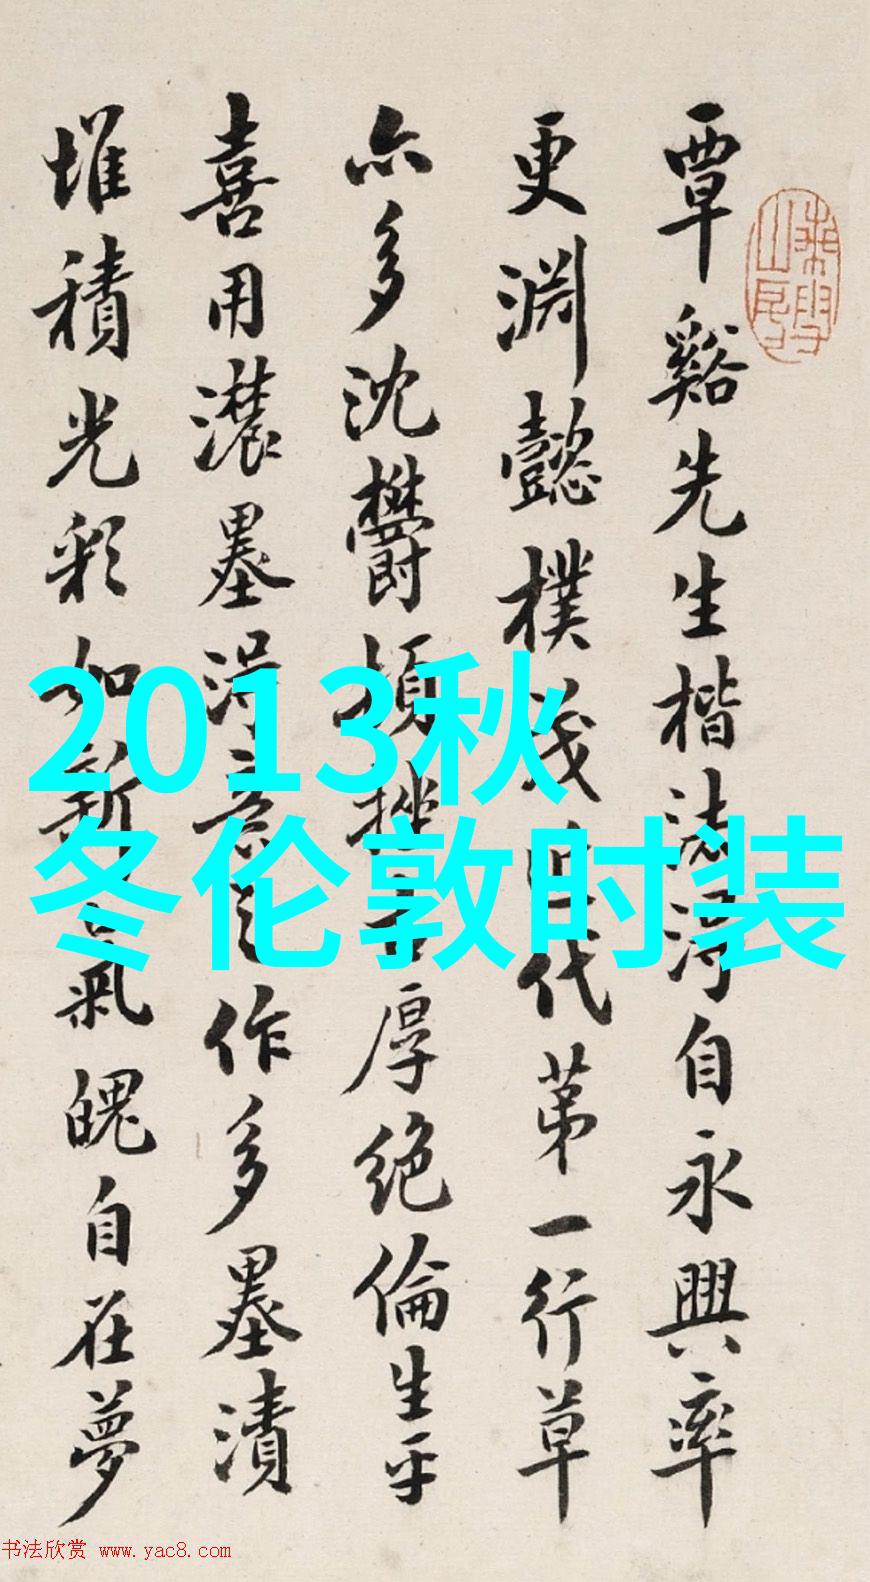 覃谿先生楷法得自永興率
更淵懿樸茂 代第一行草
亦多沈鬱頓挫 厚絕倫生平
喜用濃墨得意之作多墨漬
堆積光彩如新 氣魄自在夢
2013秋
冬伦敦时装
书法欣赏 www.yac8.com